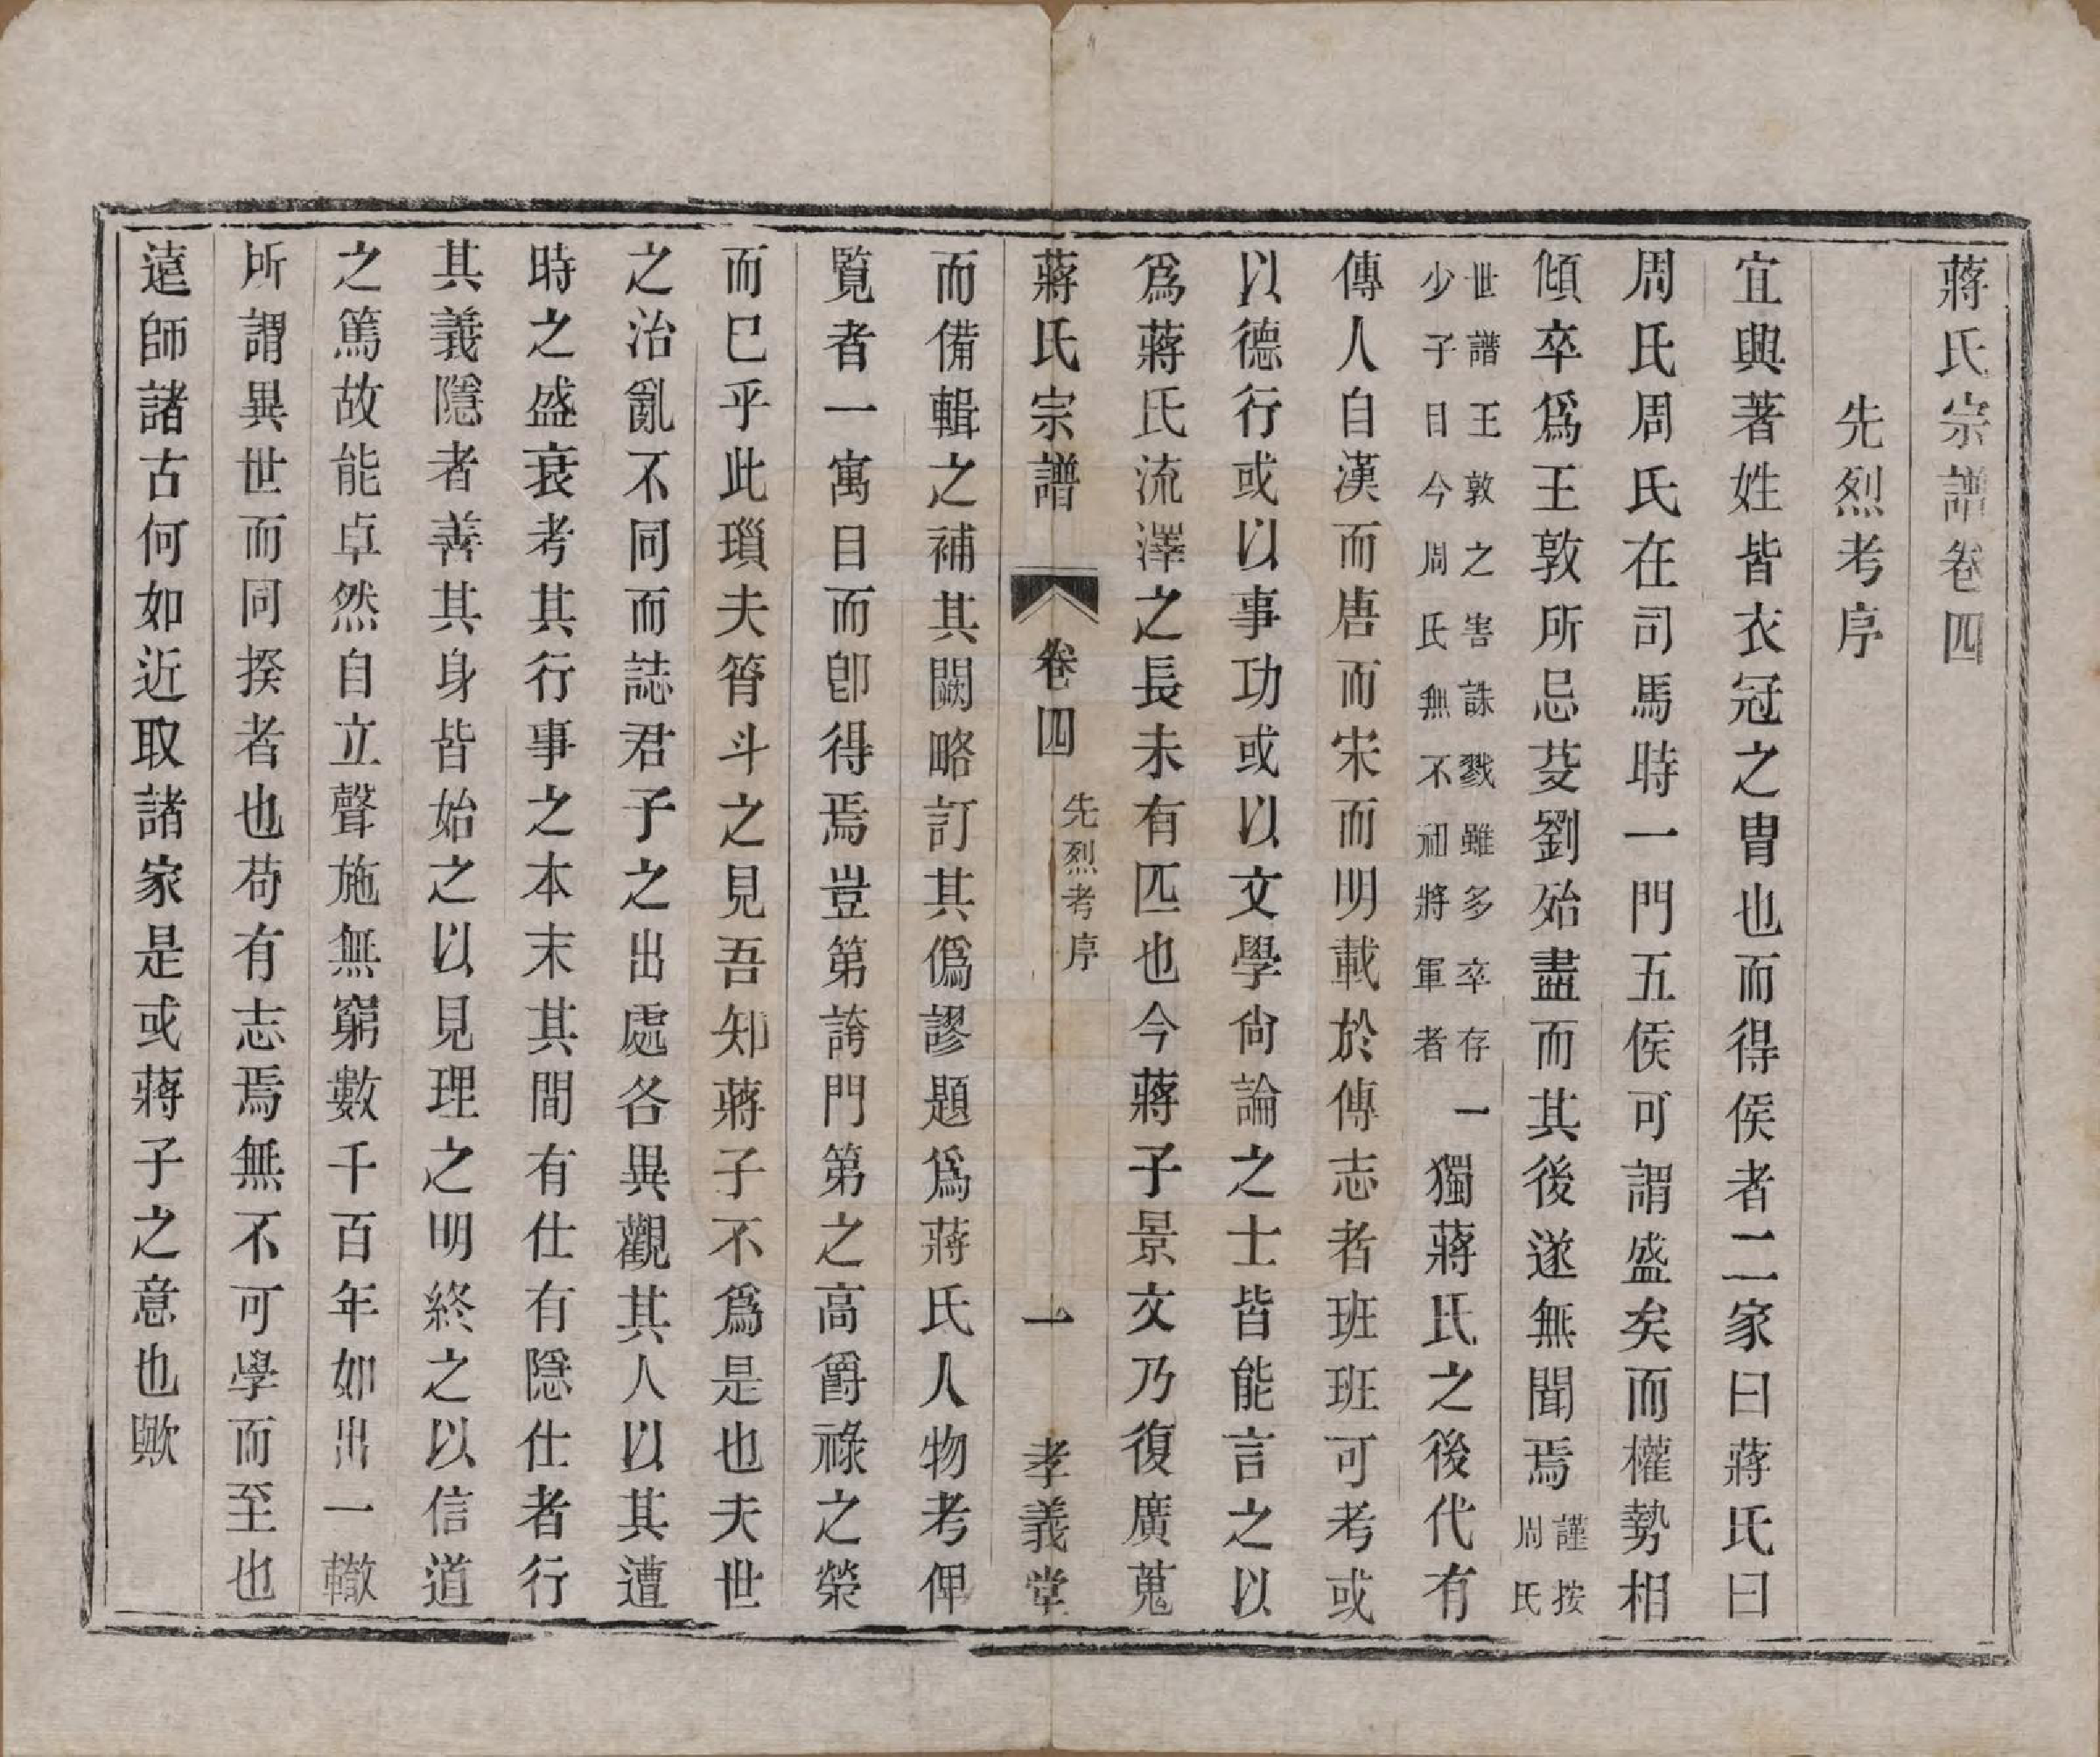 蔣氏宗譜卷四
先烈考序
宜興著姓皆衣冠之胄也而得侯者二家曰蔣氏曰
周氏周氏在司馬時一門五侯可謂盛矣而權勢相
傾卒爲王敦所忌芟劉殆盡而其後遂無聞焉謹按
周氏
世譜王敦之害誅戮雖多卒存
少子目今周氏無不祖將軍者一獨蔣氏之後代有
傳人自漢而唐而宋而明載於傳志者班班可考或
以德行或以事功或以文學尙論之士皆能言之以
爲蔣氏流澤之長未有匹也今蔣子景文乃復廣蒐
蔣氏宗譜 卷四 先烈考序 一 孝義堂
而備輯之補其闕略訂其僞謬題爲蔣氏人物考俾
覽者一寓目而卽得焉豈第誇門第之高爵祿之榮
而已乎此瑣夫筲斗之見吾知蔣子不爲是也夫世
之治亂不同而誌君子之出處各異觀其人以其遭
時之盛衰考其行事之本末其間有仕有隱仕者行
其義隱者善其身皆始之以見理之明終之以信道
之篤故能卓然自立聲施無窮數千百年如出一轍
所謂異世而同揆者也苟有志焉無不可學而至也
遠師諸古何如近取諸家是或蔣子之意也歟